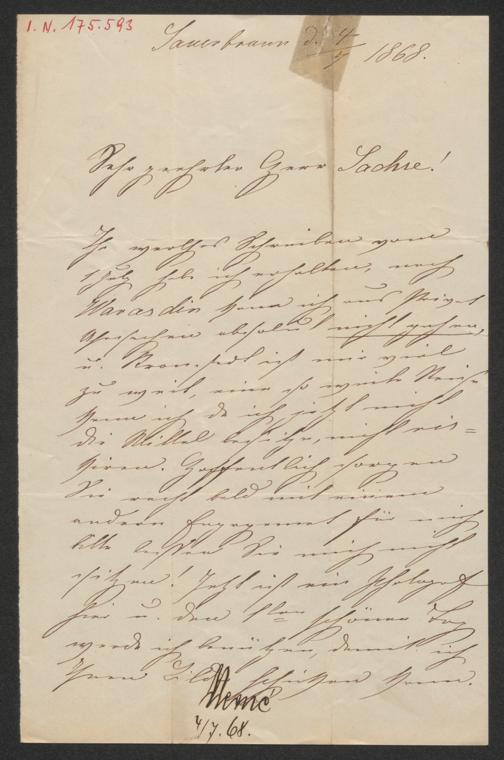 I. N. 175.593
Sauerbrunn d. 4/7 1868.
Sehr geehrter Herr Sachse!
Ihr werthes Schreiben vom
habe ich erhalten, nach
Warasdin kann ich aus Privat
absolut nicht gehen,
u. Kronstadt ist mir viel
zu weit, eine so weite Reise
kann ich da ich jetzt nicht
die Mittel besitze, nicht ris=
kiren. Hoffentlich sorgen
Sie recht bald mit einem
andern Engagement für mich
bitte lassen Sie mich nicht
sitzen! Jetzt ist ein Photograf
hier u. den 1ten schönen Tag
werde ich benützen, damit ich
Ihnen Bilder schicken kann.
4/7. 68.